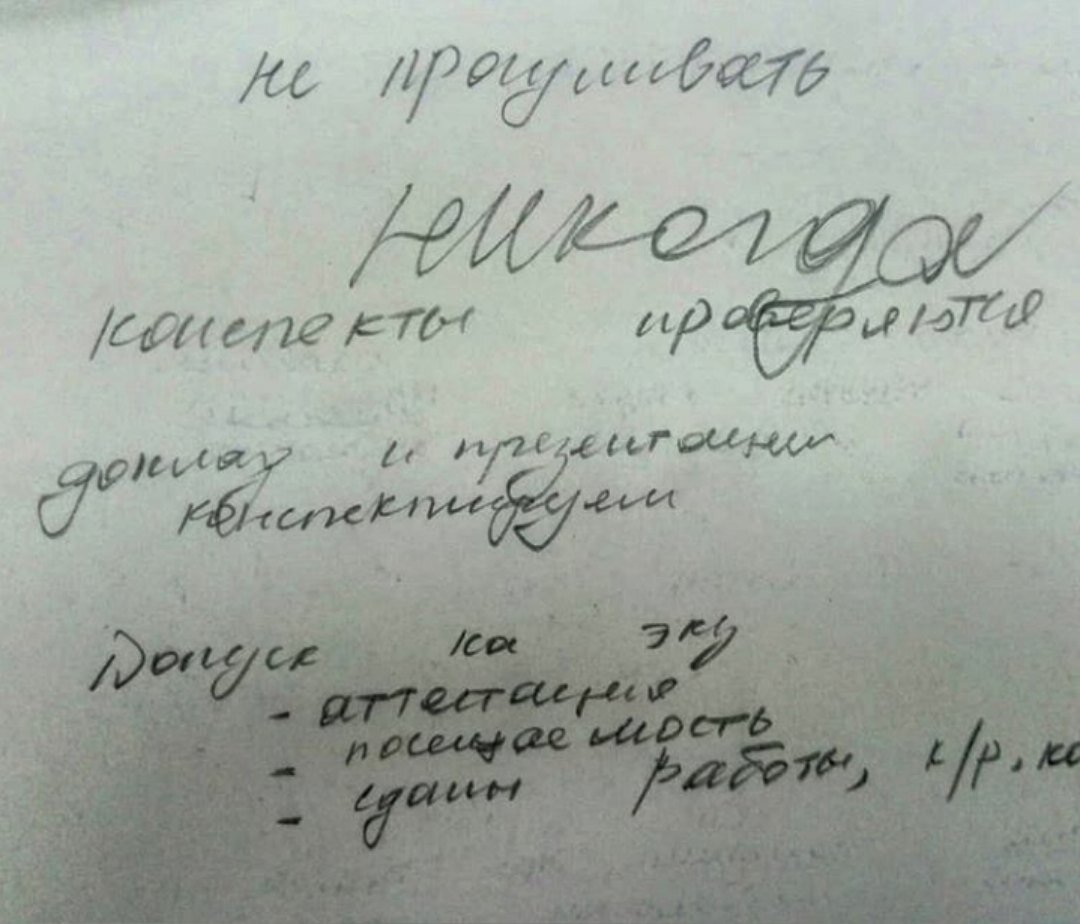 не прогуливать
никогда
конспекты проверяются
доклад и презентации
конспектируем
Допуск на экз
- аттестация
- посещаемость
- сданы работы, к/р, ко